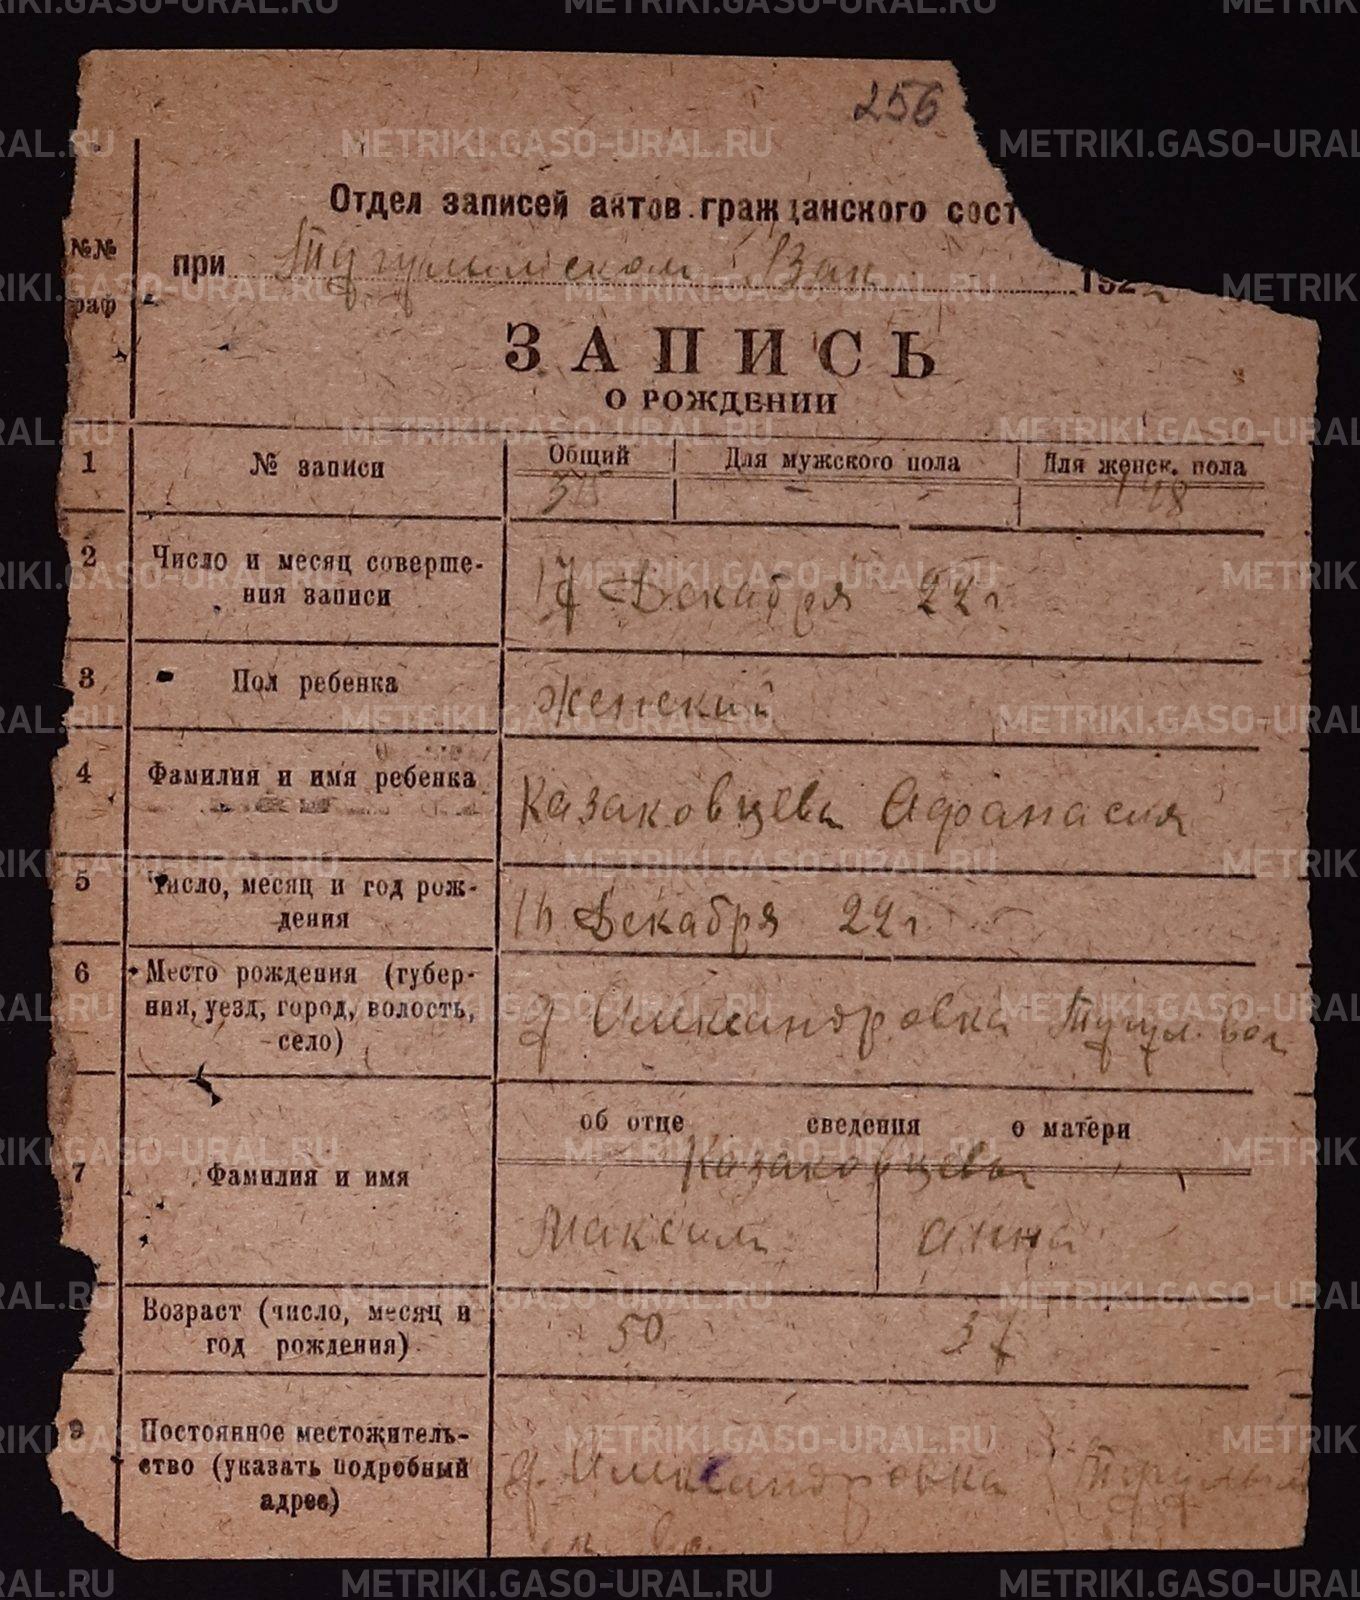 256
Отдел записей актов гражданского сост
№№
граф
при Тугулымском Взаг 192
ЗАПИСЬ
О РОЖДЕНИИ
1 № записи Общий Для мужского пола Для женск. пола
- - 148
2 Число и месяц соверше-
ния записи
17 Декабря 22 г
3 Пол ребенка Женский
4 Фамилия и имя ребенка Казаковцева Афанасия
5 Число, месяц и год рож-
дения
16 Декабря 22 г
6 Место рождения (губер-
ния, уезд, город, волость,
село)
д Александровка Тугул. вол
об отце сведения о матери
7 Фамилия и имя
Казаковцевы
Максим Анна
Возраст (число, месяц и
год рождения)
50 37
9 Постоянное местожитель-
ство (указать подробный
адрес)
д. Александровка Тугулым
METRIKI.GASO-URAL.RU